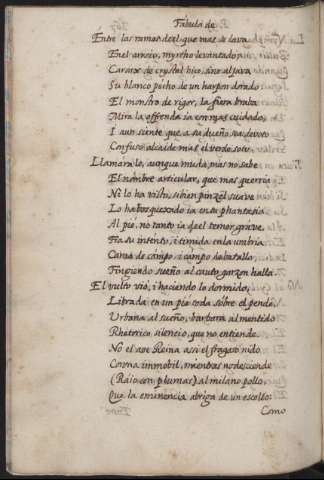 Fabula de
Entre las ramas del que mas se laua
En el arroio, myrtho leuantado,
Carcax de crystal hizo, sino aljaua
Su blanco pecho de un harpon dorado:
El monstro de rigor, la fiera braua
Mira la offrenda ia con mas cuidado,
I aun siente que a su dueño sea deuoto
Confuso alcaide mas el verde soto.
Llamaralo, aunque muda, mas no sabe
El nombre articular, que mas querria
Ni lo ha visto, si bien pinzel suaue
Lo ha bosquexado ia en su phantasia
Al pie, no tanto ia del temor graue,
Fia su intento, i timida en la umbria
Cama de cãpo, i cãpo de batalla,
Fingiendo sueño al cauto garzon halla.
El vulto vió, i haciendo lo dormido,
Librada en un pie toda sobre el pende,
Urbana al sueño, barbara al mentido
Rhetorico silencio, que no entiende.
No el aue Reina assi el fragoso nido
Corona immobil, mientras no desciende
(Raio con plumas) al milano pollo,
Que la eminencia abriga de un escollo:
Como